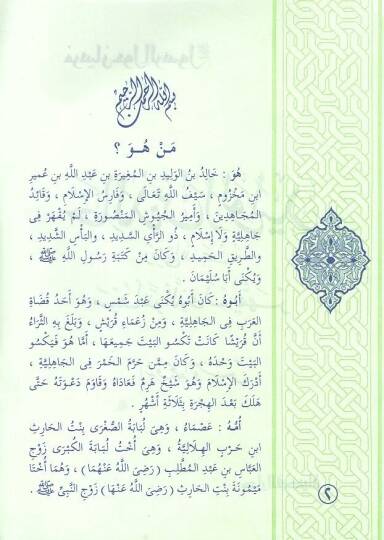 بسم الله الرحمن الرحيم
مَنْ هُـوَ ؟
هُوَ : خَالِدُ بنُ الوَلِيدِ بنِ المُغِيرَةِ بنِ عَبْدِ اللَّهِ بنِ عُميرِ
ابنِ مَخْزُومٍ ، سَيْفُ اللَّهِ تَعَالَى ، وَفَارِسُ الإِسْلَامِ ، وَقَائِدُ
المُجَاهِدِينَ ، وَأَمِيرُ الجُيُوشِ المَنْصُورَةِ ، لَمْ يُقْهَرْ فِى
جَاهِلِيَّةٍ وَلَا إِسْلَامٍ ، ذُو الرَّأْىِ السَّدِيدِ ، وَالبَأْسِ الشَّدِيدِ ،
وَالطَّرِيقِ الحَمِيدِ ، وَكَانَ مِنْ كَتَبَةِ رَسُولِ اللَّهِ ﷺ ،
وَيُكْنَى أَبَا سُلَيْمَانَ .
أَبُوهُ : كَانَ أَبُوهُ يُكْنَى عَبْدَ شَمْسٍ ، وَهُوَ أَحَدُ قُضَاةِ
العَرَبِ فِى الجَاهِلِيَّةِ ، وَمِنْ زُعَمَاءِ قُرَيْشٍ ، وَبَلَغَ بِهِ الثَّرَاءُ
أَنَّ قُرَيْشًا كَانَتْ تَكْسُو البَيْتَ جَمِيعَهَا ، أَمَّا هُوَ فَيَكْسُو
البَيْتَ وَحْدَهُ ، وَكَانَ مِمَّنْ حَرَّمَ الخَمْرَ فِى الجَاهِلِيَّةِ ،
أَدْرَكَ الإِسْلَامَ وَهُوَ شَيْخٌ هَرِمٌ فَعَادَاهُ وَقَاوَمَ دَعْوَتَهُ حَتَّى
هَلَكَ بَعْدَ الهِجْرَةِ بِثَلَاثَةِ أَشْهُرٍ .
أُمُّهُ : عَصْمَاءُ ، وَهِىَ لُبَابَةُ الصُّغْرَى بِنْتُ الحَارِثِ
ابنِ حَرْبٍ الهِلَالِيَّةُ ، وَهِىَ أُخْتُ لُبَابَةَ الكُبْرَى زَوْجِ
العَبَّاسِ بنِ عَبْدِ المُطَّلِبِ ( رَضِىَ اللَّهُ عَنْهُمَا ) ، وَهُمَا أُخْتَا
مَيْمُونَةَ بِنْتِ الحَارِثِ ( رَضِىَ اللَّهُ عَنْهَا ) زَوْجِ النَّبِىِّ ﷺ .
٢